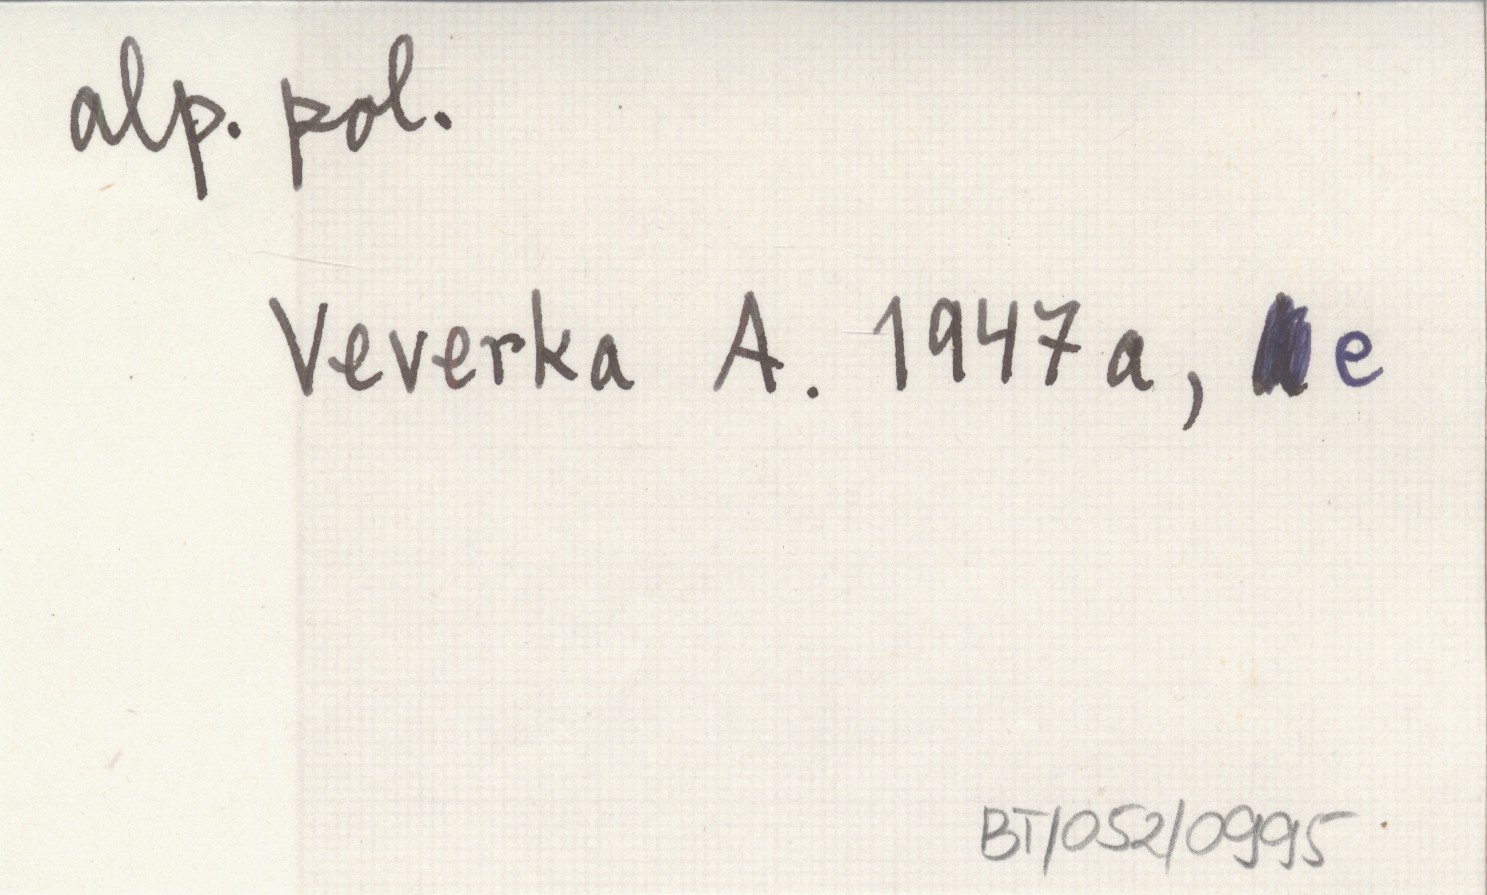 alp. pol.
Veverka A. 1947a, e
BT/052/0995